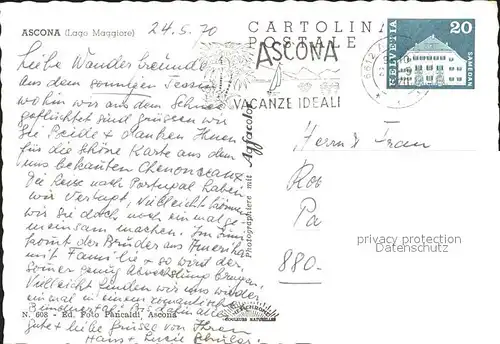 ASCONA (Lago Maggiore)
24.5.70
CARTOLINA
POSTALE
ASCONA
VACANZE IDEALI
HELVETIA
20
SAMEDAN
6612
Liebe Wanderfreunde
Aus dem sonnigen Tessin
wohin wir aus dem Schnee
geflüchtet sind grüssen wir
Sie Beide & danken Ihnen
für die schöne Karte aus dem
uns bekannten Chenonceaux
Die Reise nach Portugal haben
wir vertagt, vielleicht können
wir Sie doch noch einmal ge-
meinsam machen. Im Juni
kommt der Bruder aus Amerika
mit Familie & so wird der
Sommer genug Abwechslung bringen.
Vielleicht finden wir uns wieder
einmal in einem romantischen
Bündnertal! Bis dahin alles
gute & liebe Grüsse von Ihren
Hans & Lucie
Photographiere mit Agfacolor
COULEURS NATURELLES
N. 608 - Ed. Foto Pancaldi, Ascona
Herrn & Frau
Pa
880.
privacy protection
www.ansichtskartenversand.com